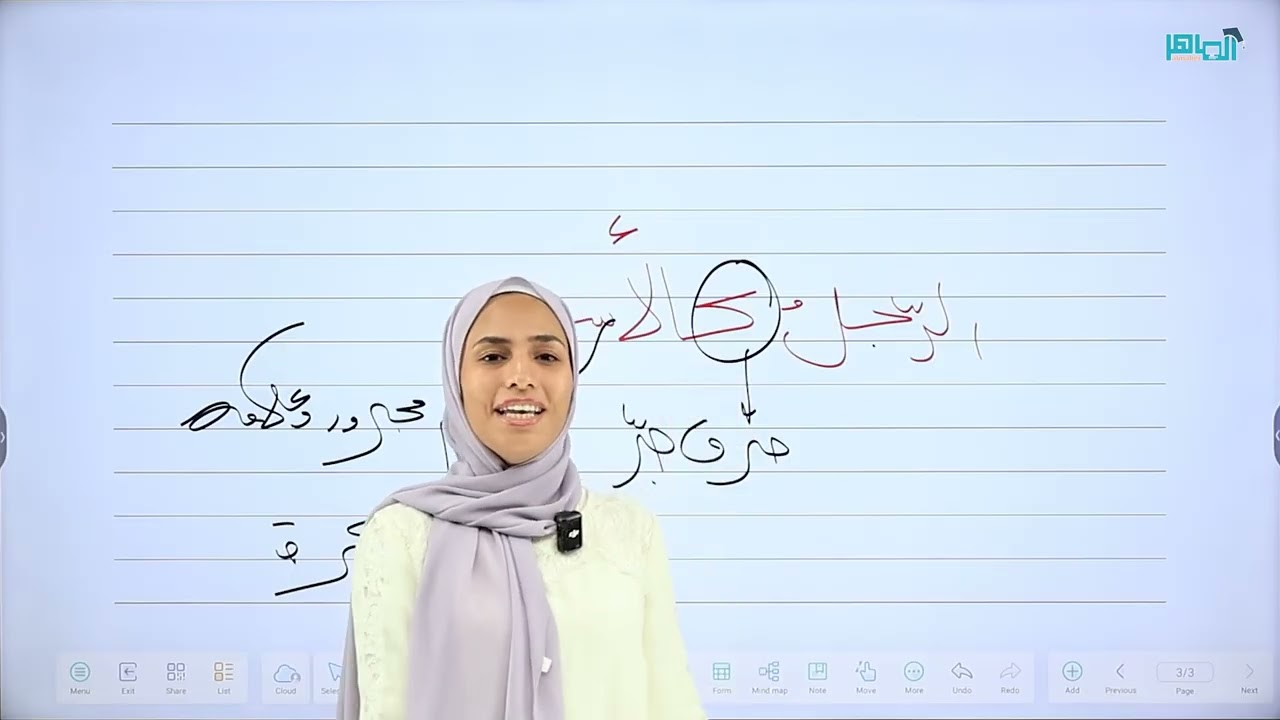 الماهر
الرّجلُ كالأسـ
حرف جرّ
مجرور وعلامة
Menu Exit Share List Cloud Form Mind map Note Move More Undo Redo Add Previous 3/3 Page Next